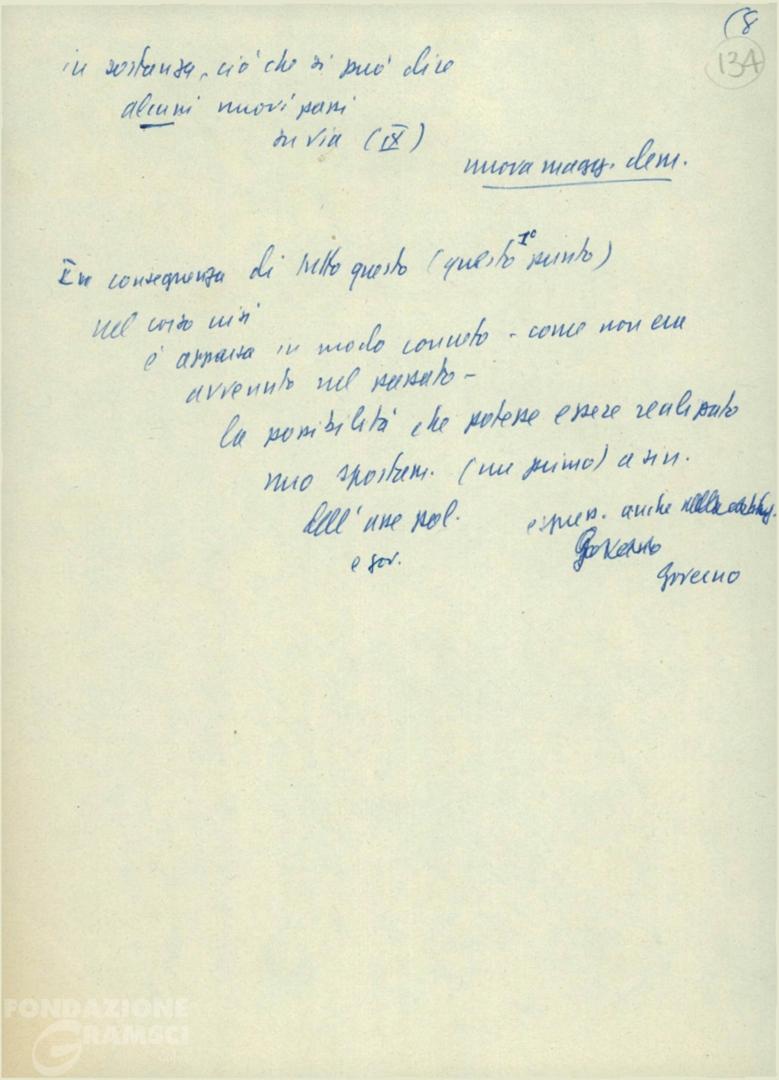 (8
134
in sostanza, ciò che si può dire
alcuni nuovi passi
in via (IX)
nuova magg. dem.
In conseguenza di tutto questo (questo 1° punto)
nel corso
è apparsa in modo concreto - come non era
avvenuto nel passato -
la possibilità che potesse essere realizzato
uno spostam. (un primo) a sin.
dell'asse pol.
e gov.
espress. anche
Governo
Governo
FONDAZIONE
GRAMSCI